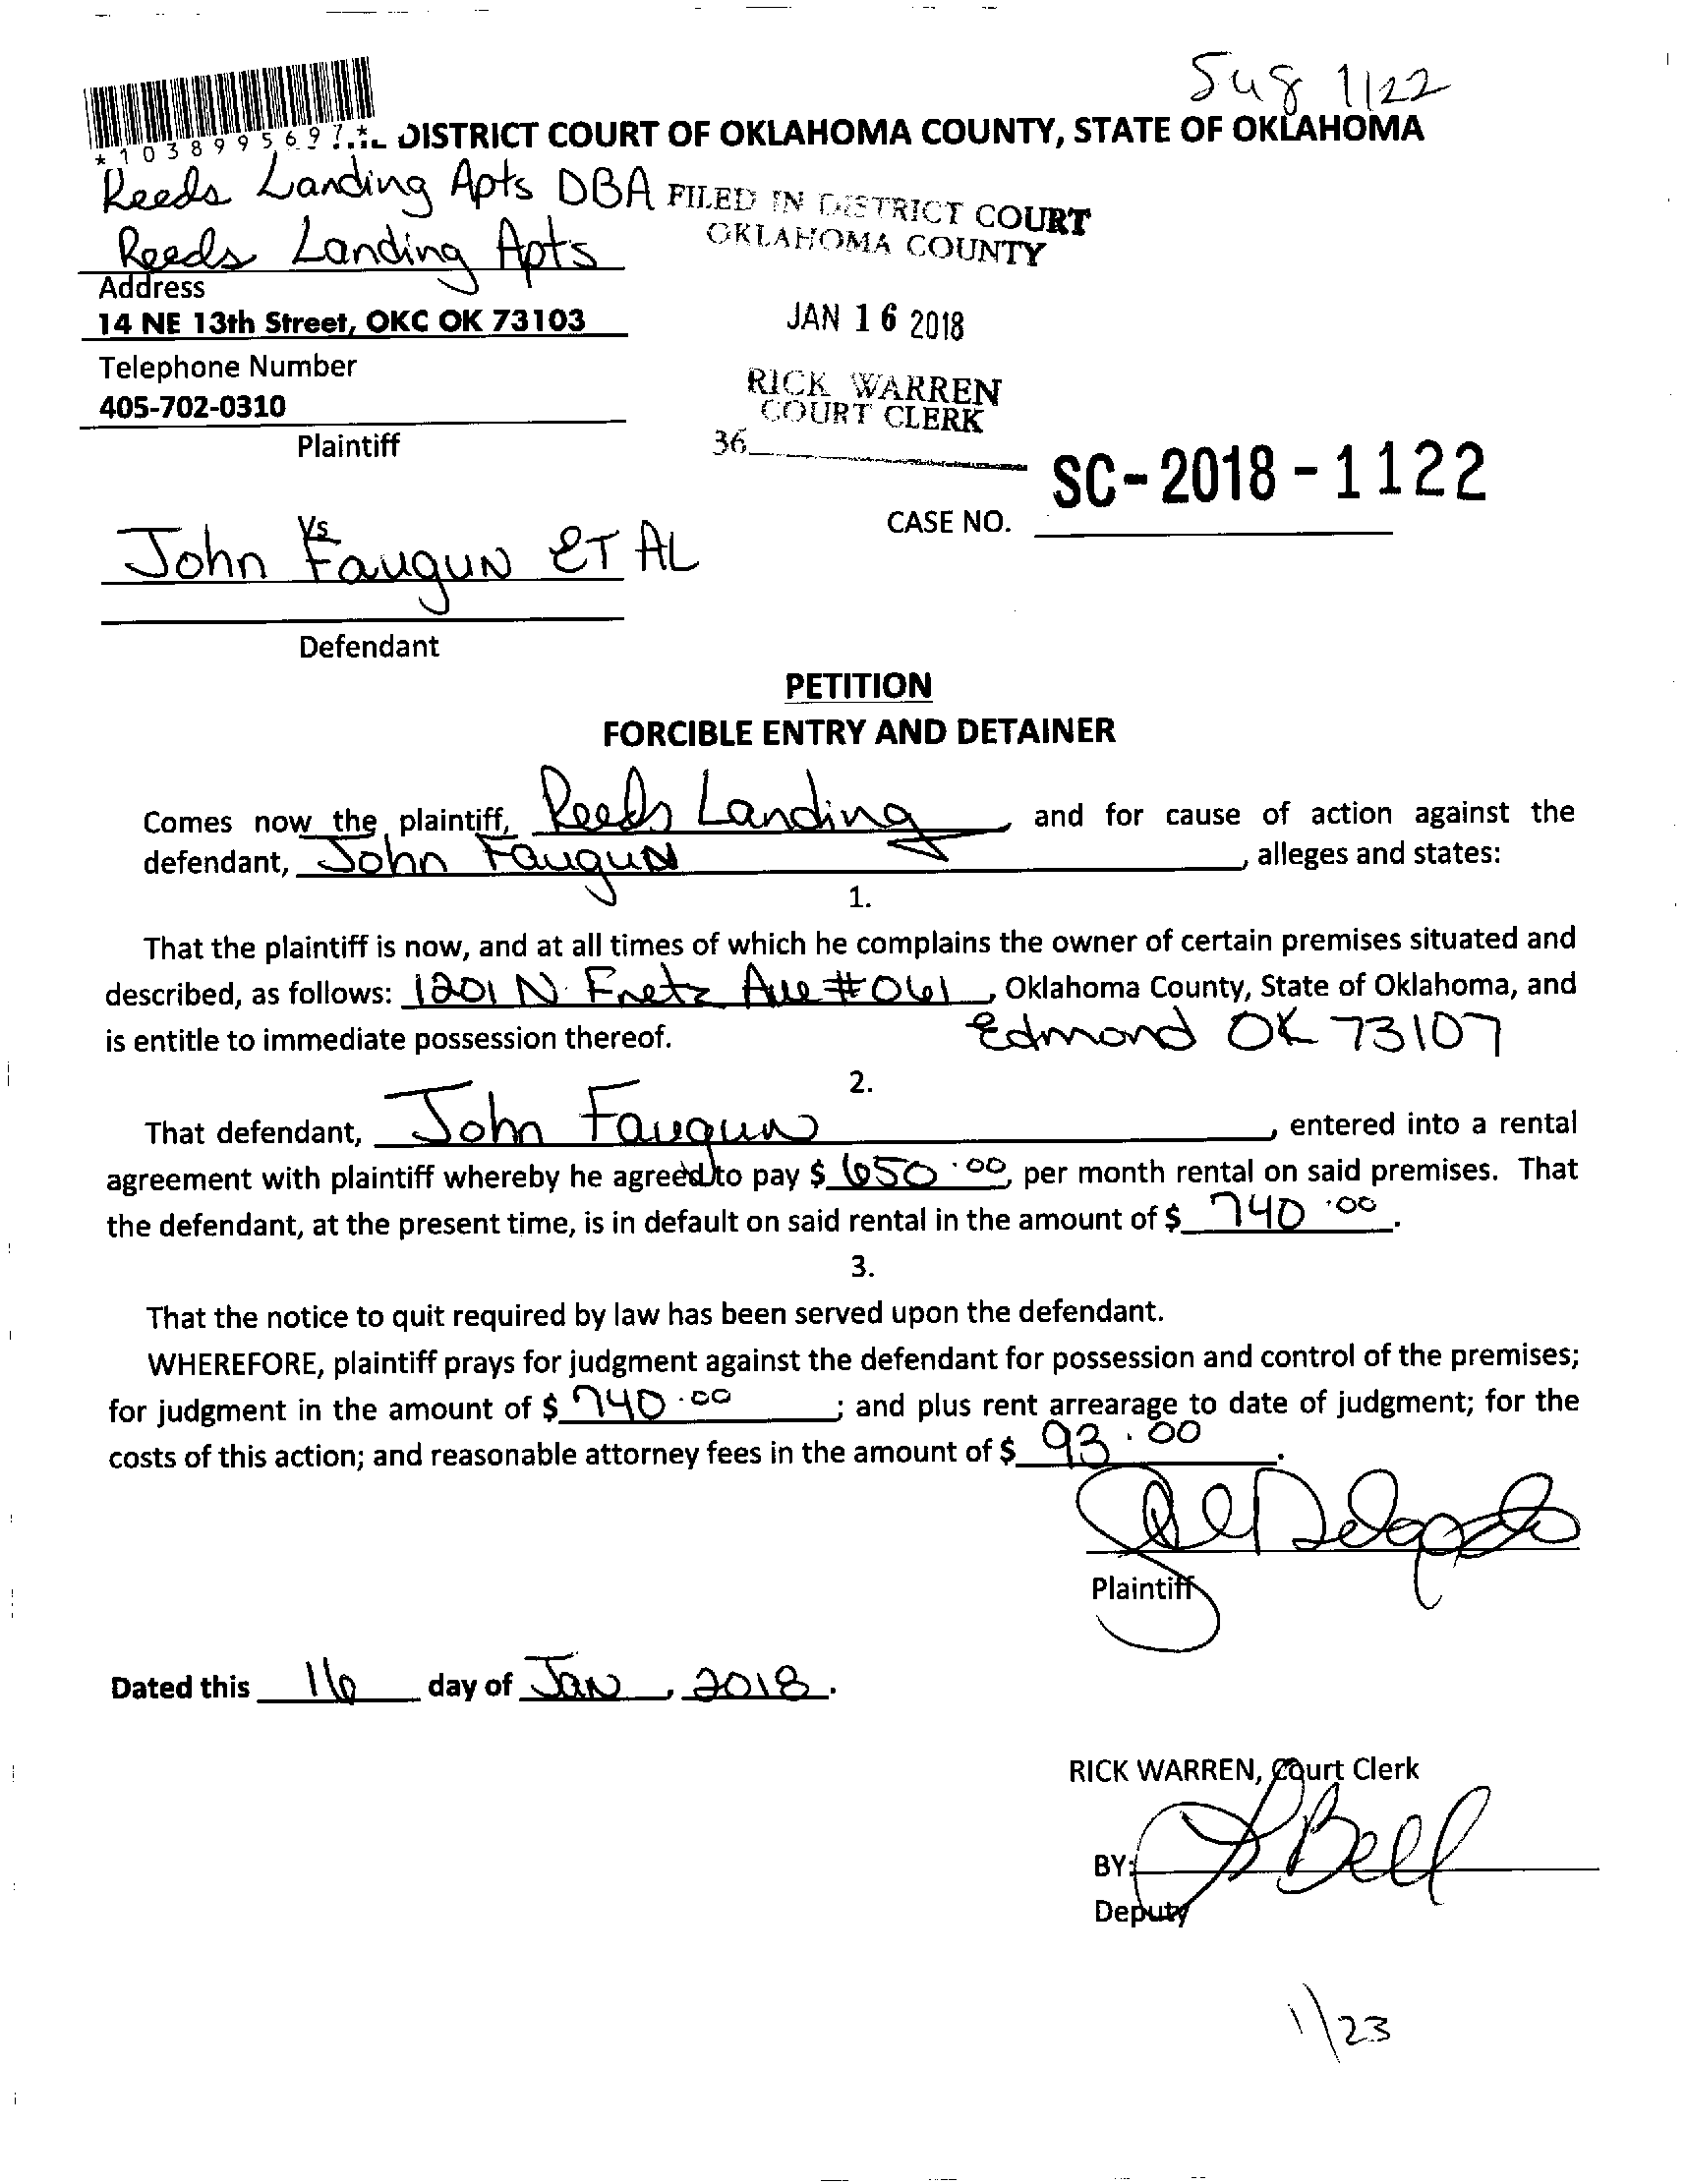 Sug 1/22
*1038995697.*L DISTRICT COURT OF OKLAHOMA COUNTY, STATE OF OKLAHOMA
Reeds Landing Apts DBA
Reeds Landing Apts
FILED IN DISTRICT COURT
OKLAHOMA COUNTY
Address
14 NE 13th Street, OKC OK 73103
JAN 16 2018
Telephone Number
405-702-0310
RICK WARREN
COURT CLERK
36
Plaintiff
SC-2018-1122
CASE NO.
Vs
John Faugun ET AL
Defendant
PETITION
FORCIBLE ENTRY AND DETAINER
Comes now the plaintiff, Reeds Landing, and for cause of action against the
defendant, John Faugun, alleges and states:
1.
That the plaintiff is now, and at all times of which he complains the owner of certain premises situated and
described, as follows: 1201 N. Fretz Ave #061, Oklahoma County, State of Oklahoma, and
is entitle to immediate possession thereof. Edmond OK 73107
2.
That defendant, John Faugun, entered into a rental
agreement with plaintiff whereby he agreed to pay $ 650.00, per month rental on said premises. That
the defendant, at the present time, is in default on said rental in the amount of $ 740.00.
3.
That the notice to quit required by law has been served upon the defendant.
WHEREFORE, plaintiff prays for judgment against the defendant for possession and control of the premises;
for judgment in the amount of $ 740.00; and plus rent arrearage to date of judgment; for the
costs of this action; and reasonable attorney fees in the amount of $ 93.00.
Delgado
Plaintiff
Dated this 16 day of Jan, 2018.
RICK WARREN, Court Clerk
BY: Bell
Deputy
1/23